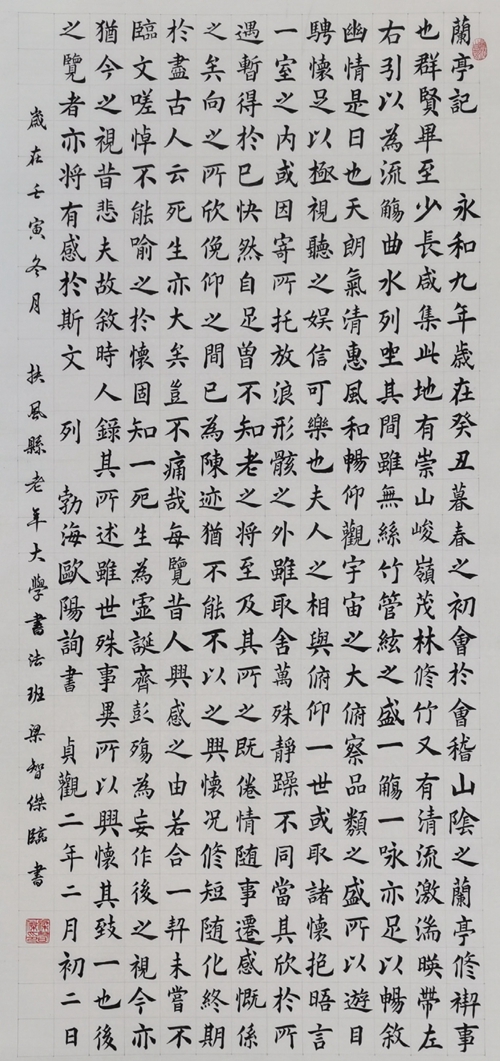 蘭亭記 永和九年歲在癸丑暮春之初會於會稽山陰之蘭亭修禊事
也群賢畢至少長咸集此地有崇山峻嶺茂林修竹又有清流激湍暎帶左
右引以為流觴曲水列坐其間雖無絲竹管絃之盛一觴一咏亦足以暢敘
幽情是日也天朗氣清惠風和暢仰觀宇宙之大俯察品類之盛所以遊目
騁懷足以極視聽之娛信可樂也夫人之相與俯仰一世或取諸懷抱晤言
一室之內或因寄所托放浪形骸之外雖取舍萬殊靜躁不同當其欣於所
遇暫得於已快然自足曽不知老之將至及其所之既倦情随事遷感慨係
之矣向之所欣俛仰之間已為陳迹猶不能不以之興懷况修短随化終期
於盡古人云死生亦大矣豈不痛哉每覽昔人興感之由若合一契未嘗不
臨文嗟悼不能喻之於懷固知一死生為虛誕齊彭殤為妄作後之視今亦
猶今之視昔悲夫故敘時人錄其所述雖世殊事異所以興懷其致一也後
之覽者亦将有感於斯文 列 勃海歐陽詢書 貞觀二年二月初二日
歲在壬寅冬月 扶風縣老年大學書法班梁智傑臨書